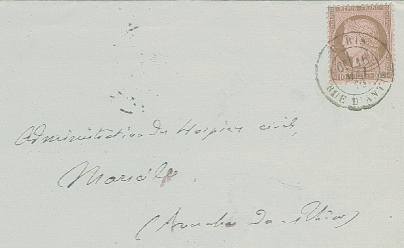 PARIS
RUE D'ANTIN
Administration des Hospices civils,
Marseille
(Bouches du Rhône)